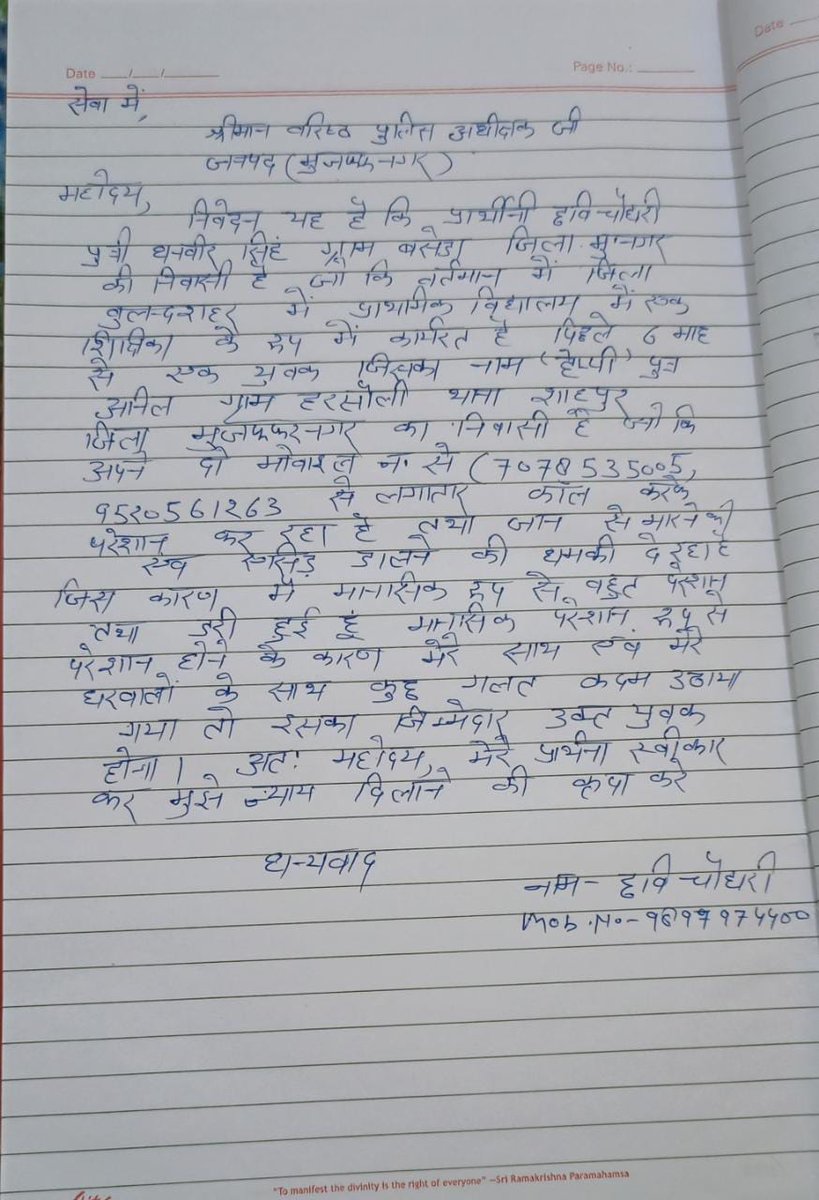 Date
Date ___/___/______
Page No.: ______
सेवा में,
श्रीमान वरिष्ठ पुलिस अधीक्षक जी
जनपद (मुजफ्फरनगर)
महोदय,
निवेदन यह है कि प्रार्थीनी छवि चौधरी
पुत्री धनवीर सिहं ग्राम बसेडा जिला मु०नगर
की निवासी है जो कि वर्तमान में जिला
बुलन्दशहर में प्राथमिक विद्यालय में एक
शिक्षिका के रूप में कार्यरत है पिछले 6 माह
से एक युवक जिसका नाम (हैप्पी) पुत्र
अनिल ग्राम हरसौली थाना शाहपुर
जिला मुजफ्फरनगर का निवासी है जो कि
अपने दो मोबाइल न० से (7078535005,
9520561263 से लगातार कॉल करके
परेशान कर रहा है तथा जान से मारने की
एव एसिड डालने की धमकी दे रहा है
जिस कारण मैं मानसिक रूप से बहुत परेशान
तथा डरी हुई हूं मानसिक परेशान रूप से
परेशान होने के कारण मेरे साथ एवं मेरे
घरवालों के साथ कुछ गलत कदम उठाया
गया तो इसका जिम्मेदार उक्त युवक
होगा। अतः महोदय, मेरे प्रार्थना स्वीकार
कर मुझे न्याय दिलाने की कृपा करे
धन्यवाद
नाम - छवि चौधरी
Mob. No-
"To manifest the divinity is the right of everyone" –Sri Ramakrishna Paramahamsa